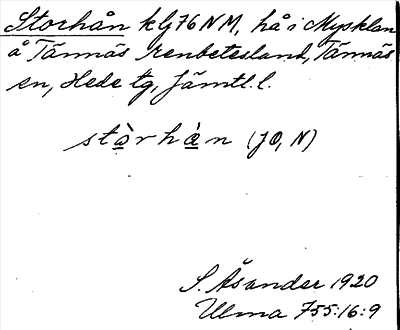 Storhån klj 76 NM, hå i Mysklan
å Tännäs renbetesland, Tännäs
sn, Hede tg, Jämtl. l.
stò̱rhà̱n (JO, N)
S. Åsander 1920
Ulma 755:16:9